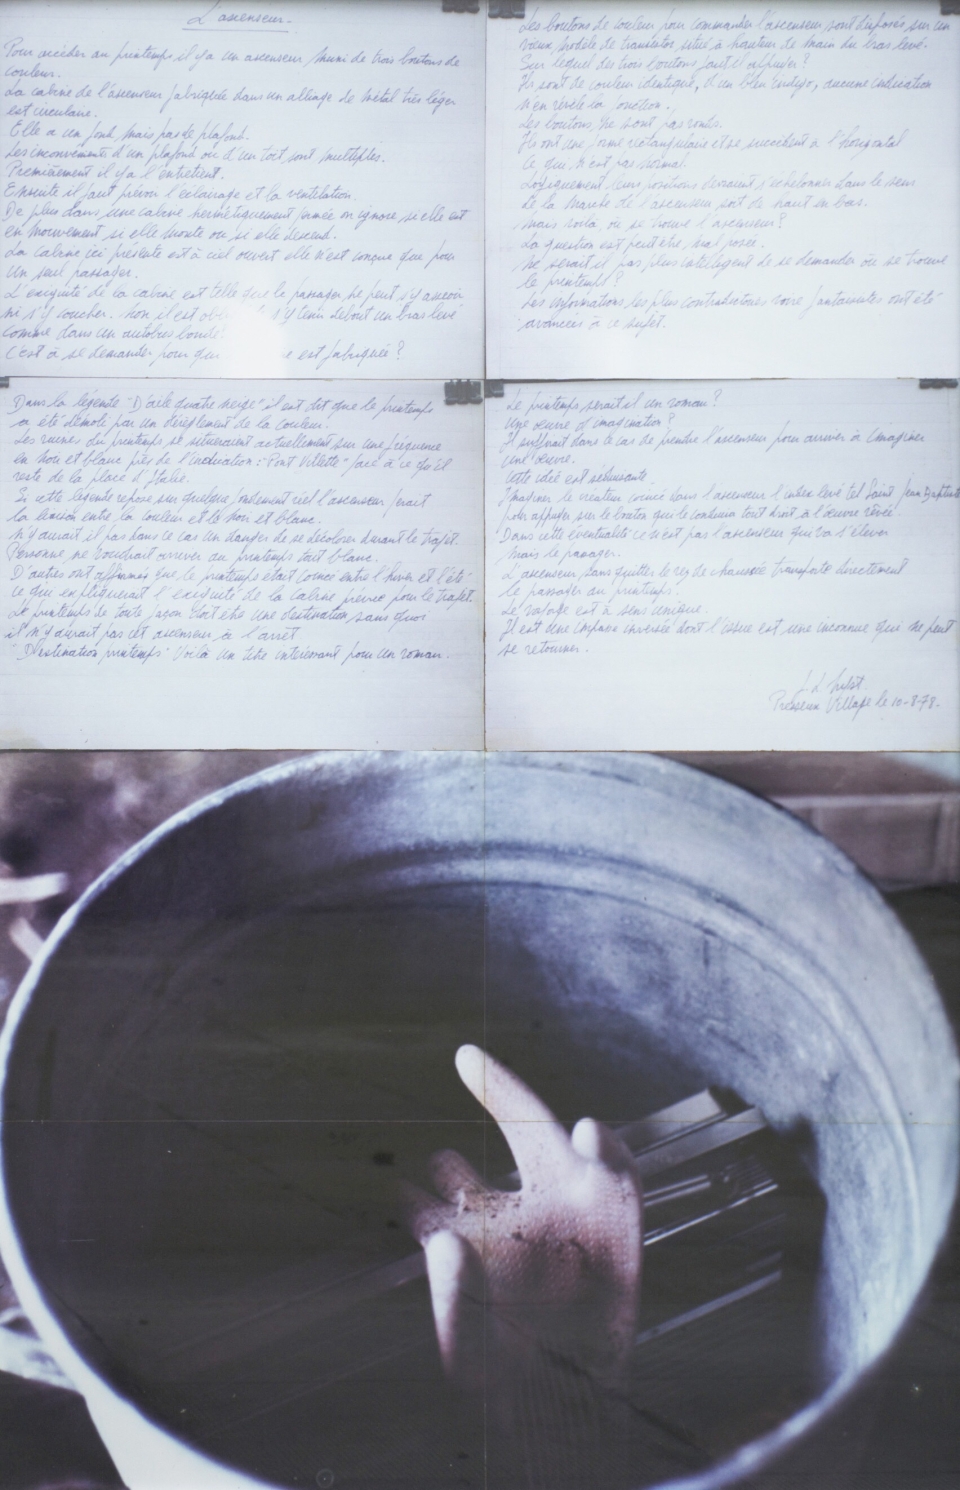 L'ascenseur.
Pour accéder au printemps il y a un ascenseur muni de trois boutons de
couleur.
La cabine de l'ascenseur fabriquée dans un alliage de métal très léger
est circulaire.
Elle a un fond mais pas de plafond.
Les inconvénients d'un plafond ou d'un toit sont multiples.
Premièrement il y a l'entretient.
Ensuite il faut prévoir l'éclairage et la ventilation.
De plus dans une cabine hermétiquement fermée on ignore, si elle est
en mouvement si elle monte ou si elle descend.
La cabine ici présente est à ciel ouvert elle n'est conçue que pour
un seul passager.
L'exiguité de la cabine est telle que le passager ne peut s'y asseoir
ni s'y coucher. Non il est s'y tenir debout un bras levé
comme dans un autobus bondé.
C'est à se demander pour qui est fabriquée ?
Les boutons de couleur pour commander l'ascenseur sont disposés sur un
vieux modèle de transistor situé à hauteur de main du bras levé.
Sur lequel des trois boutons faut il appuyer ?
Ils sont de couleur identique, d'un bleu indigo, aucune indication
n'en révèle la fonction.
Les boutons, ne sont pas ronds.
Ils ont une forme rectangulaire et se succèdent à l'horizontal
ce qui n'est pas normal.
Logiquement leurs positions devraient s'échelonner dans le sens
de la marche de l'ascenseur soit de haut en bas.
Mais voilà où se trouve l'ascenseur ?
La question est peut être, mal posée.
Ne serait il pas plus intelligent de se demander où se trouve
le printemps ?
Les informations les plus contradictoires voire fantaisistes ont été
avancées à ce sujet.
Dans la légende "D'aele quatre neige" il est dit que le printemps
a été démoli par un dérèglement de la couleur.
Les ruines du printemps se situeraient actuellement sur une fréquence
en noir et blanc près de l'indication : "Pont Villette" face à ce qu'il
reste de la place d'Italie.
Si cette légende repose sur quelque fondement réel l'ascenseur ferait
la liaison entre la couleur et le noir et blanc.
N'y aurait il pas dans ce cas un danger de se décolorer durant le trajet.
Personne ne voudrait arriver au printemps tout blanc.
D'autres ont affirmés que le printemps était coincé entre l'hiver et l'été
ce qui expliquerait l'exiguité de la cabine prévue pour le trajet.
Le printemps de toute façon doit être une destination sans quoi
il n'y aurait pas cet ascenseur à l'arrêt
"Destination printemps" Voilà un titre intéressant pour un roman.
Le printemps serait il un roman ?
Une œuvre d'imagination ?
Il suffirait dans le cas de prendre l'ascenseur pour arriver à imaginer
une œuvre.
Cette idée est séduisante.
Imaginer le créateur coincé dans l'ascenseur l'index levé tel Saint Jean Baptiste
pour appuyer sur le bouton qui le conduira tout droit à l'œuvre rêvée.
Dans cette éventualité ce n'est pas l'ascenseur qui va s'élever
mais le passager.
L'ascenseur sans quitter le rez de chaussée transporte directement
le passager au printemps.
Le voyage est à sens unique.
Il est une impasse inversée dont l'issue est une inconnue qui ne peut
se retourner.
Village le 10-8-78.